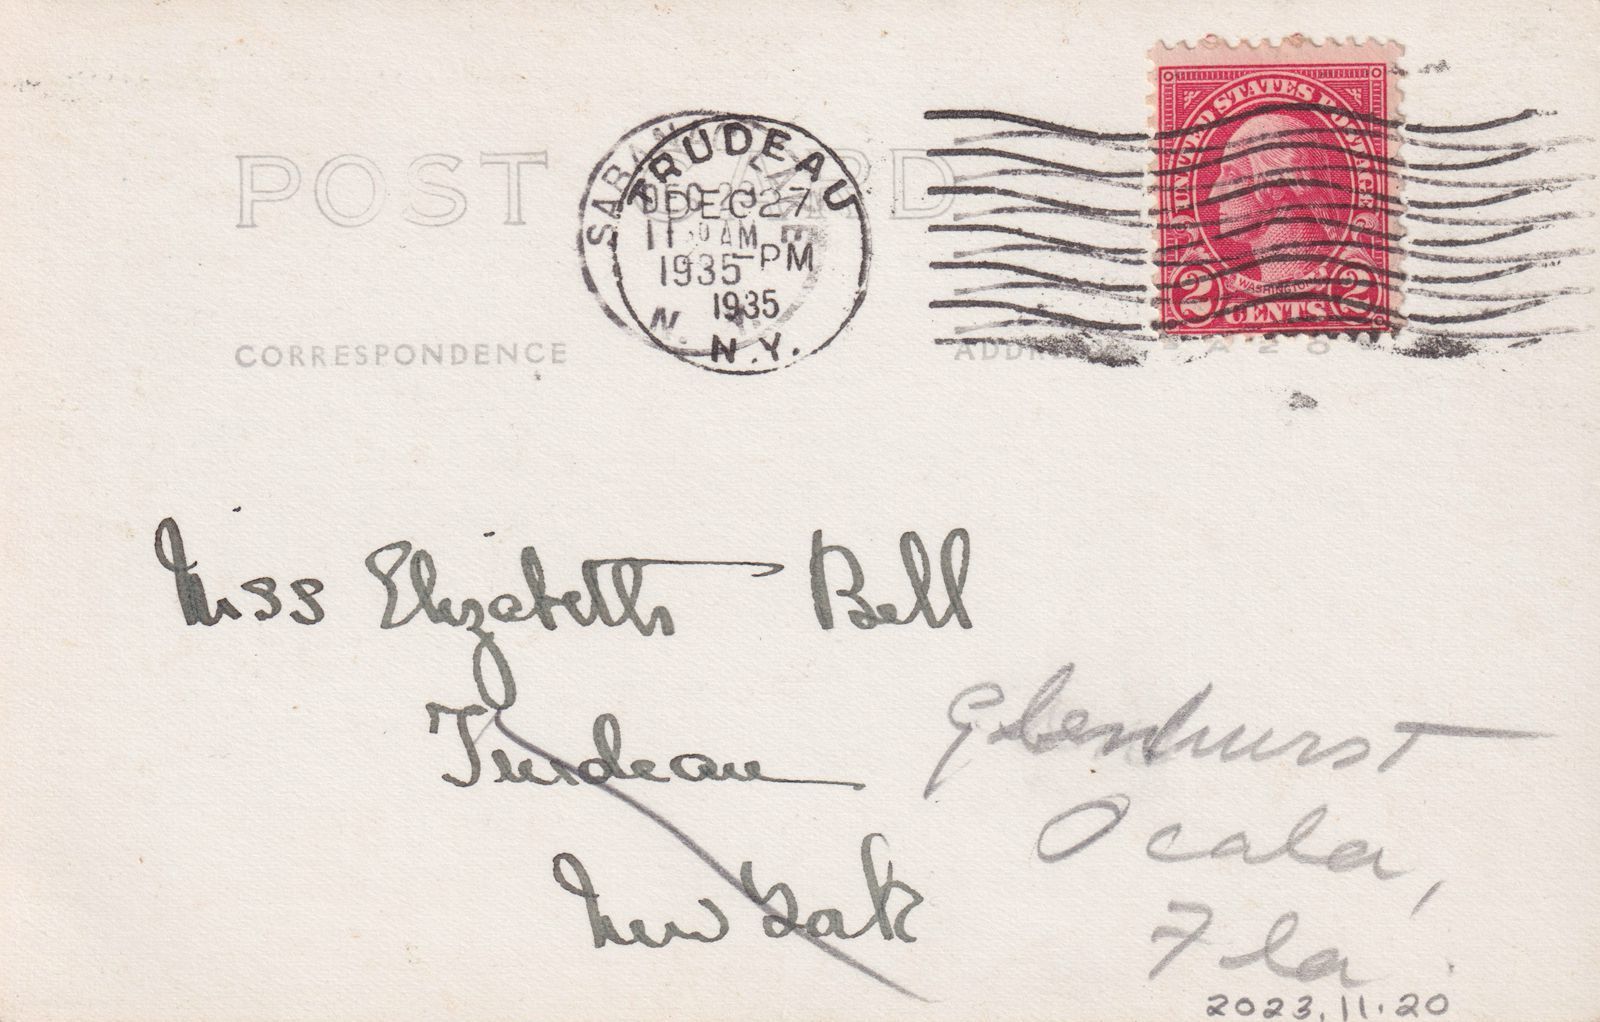 POST CARD
SARANAC LAKE
DEC 23
11 30 AM
1935
N.Y.
TRUDEAU
DEC 27
PM
1935
N.Y.
UNITED STATES POSTAGE
WASHINGTON
2 CENTS 2
CORRESPONDENCE
ADDRESS
Miss Elizabeth Bell
Trudeau
New York
Glenhurst
Ocala,
Fla.
2023.11.20